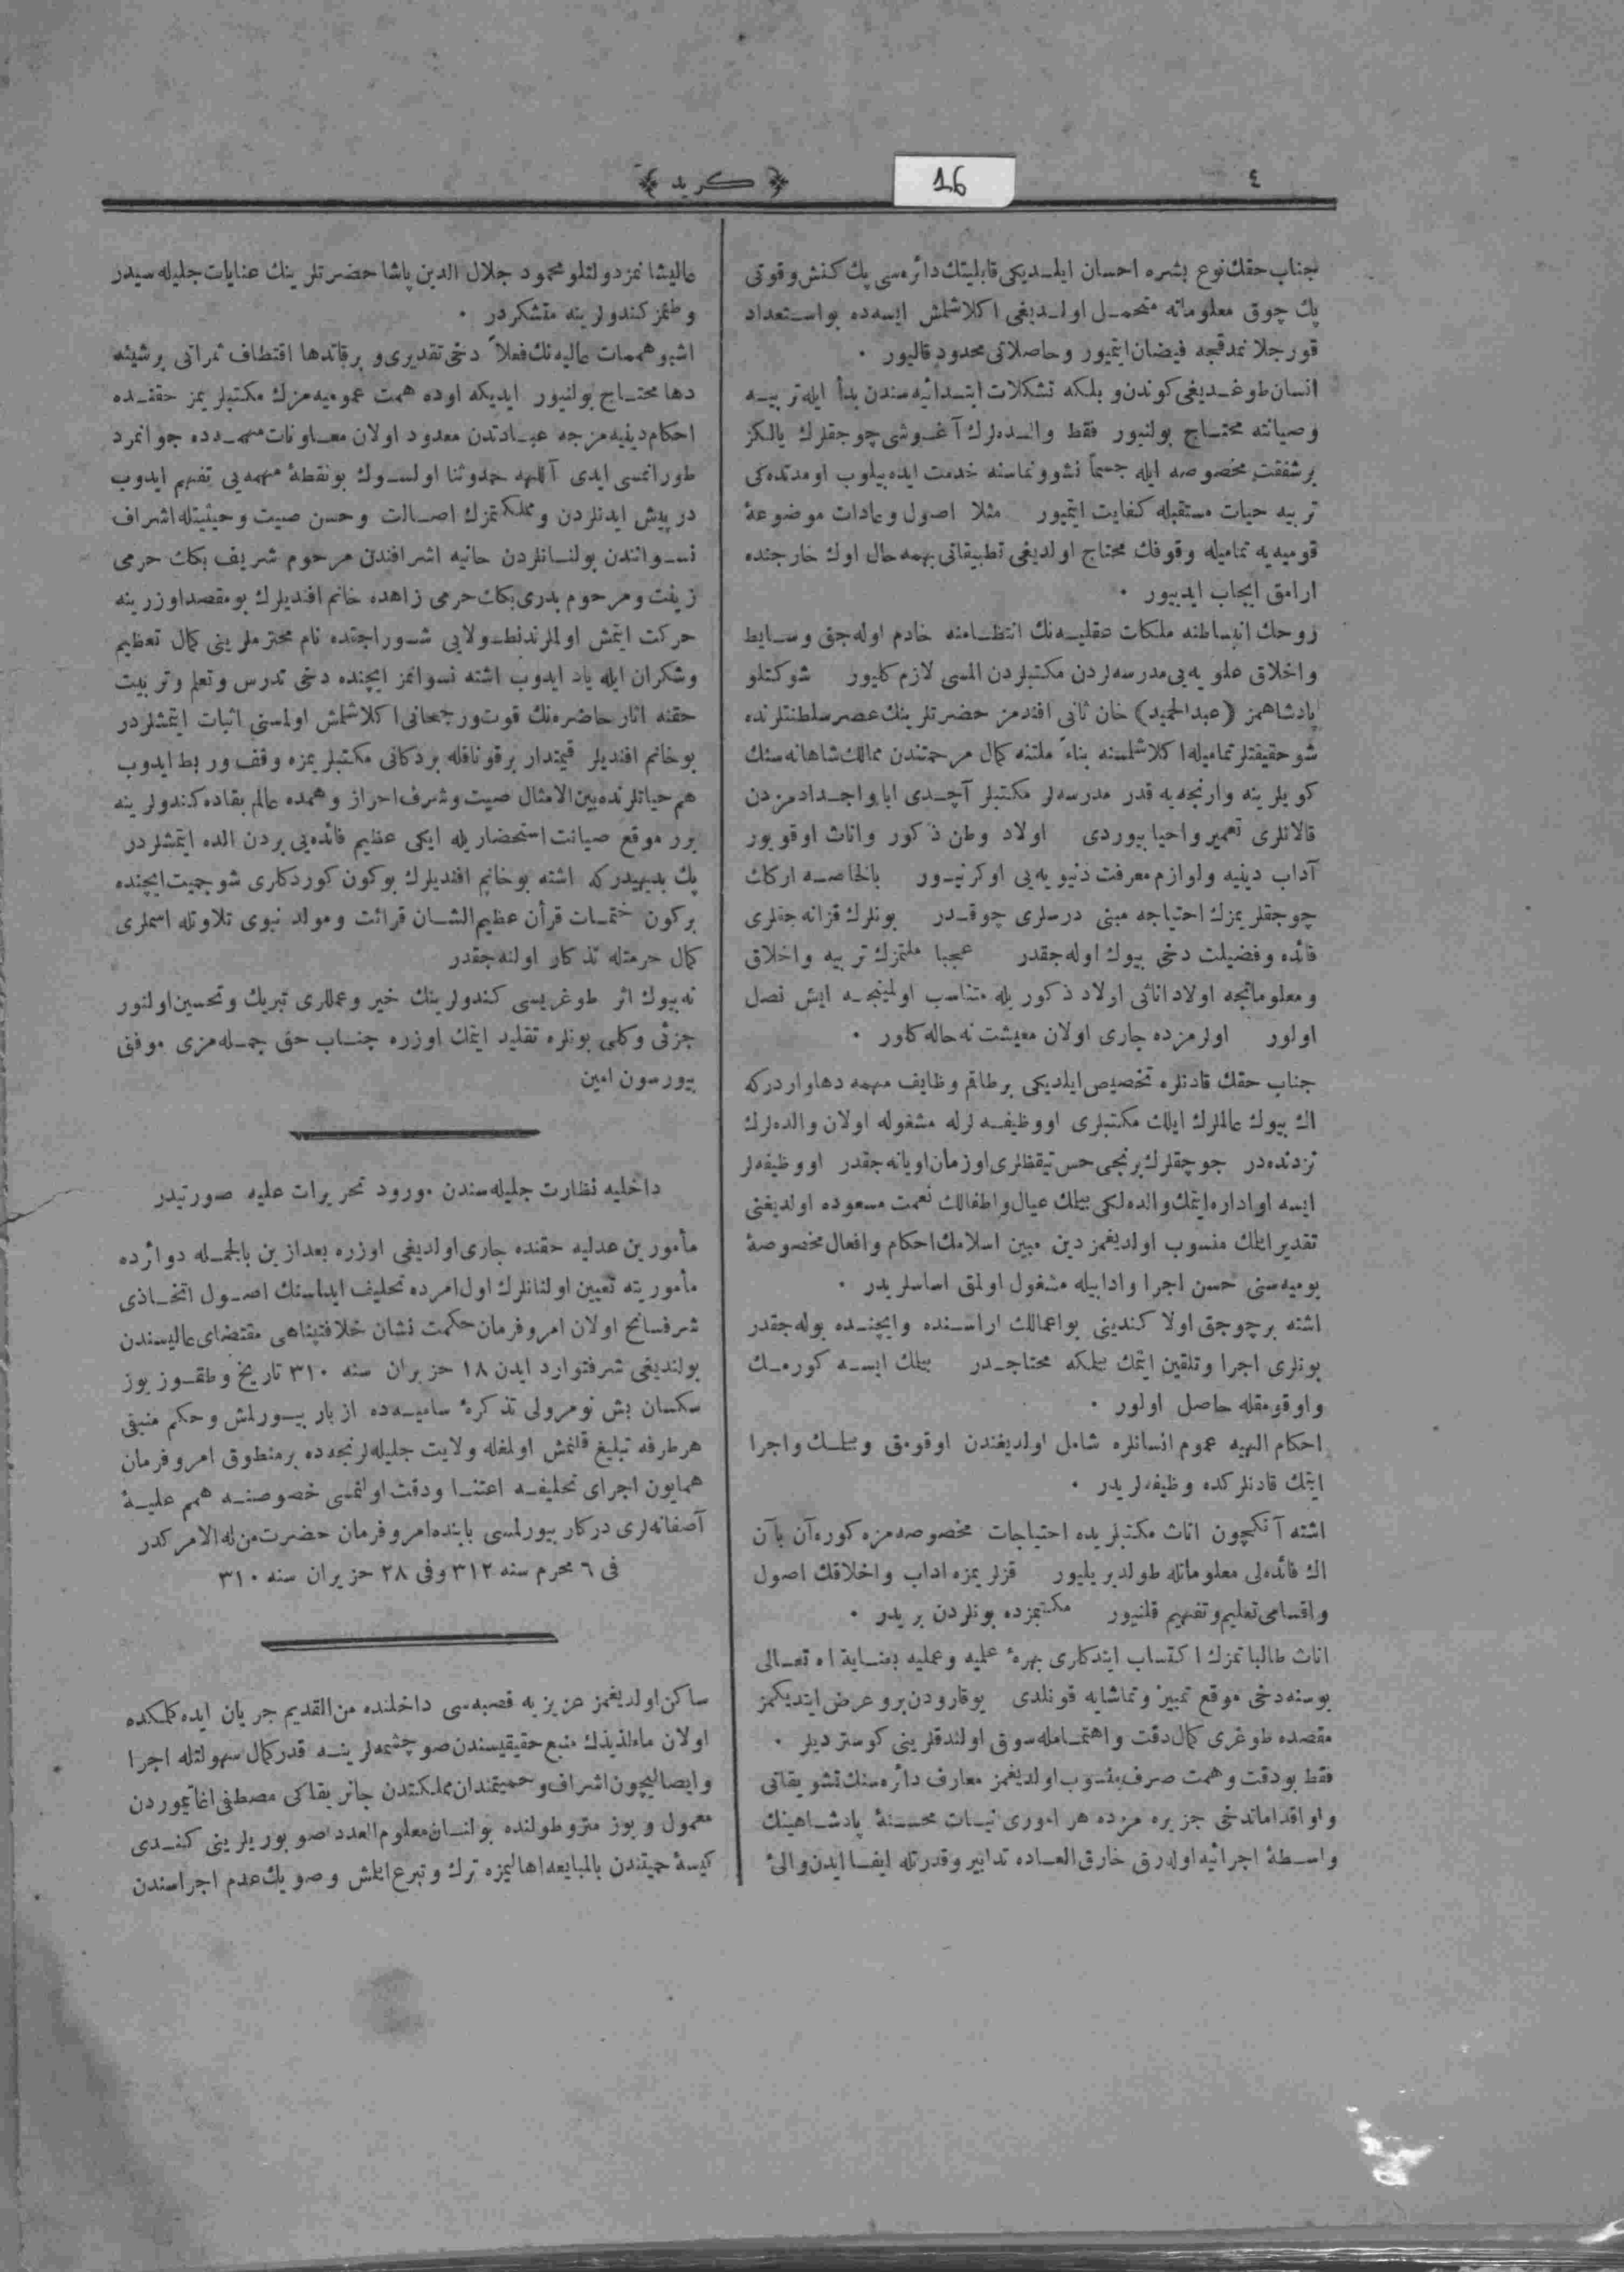 ٤
16
﴿ كريد ﴾
جناب حقك نوع بشره احسان ايلديكى قابليتك دائره‌سى پك كنش وقوتى
پك چوق معلوماته متحمل اولديغى اكلاشلمش ايسه‌ده بو استعداد
قورجلانمدقجه فيضان ايتميور وحاصلاتى محدود قاليور ٠
انسان طوغديغى كوندن وبلكه تشكلات ابتدائيه‌سندن بدأ ايله تربيه
وصيانته محتاج بولنيور فقط والده‌لرك آغوشى چوجقلرك يالكز
بر شفقت مخصوصه ايله جسماً نشوونماسنه خدمت ايده‌بيلوب اومدتده‌كى
تربيه حيات مستقبله كفايت ايتميور مثلا اصول وعادات موضوعهٔ
قوميه‌يه تماميله وقوفك محتاج اولديغى تطبيقاتى بهمه‌حال اوك خارجنده
ارامق ايجاب ايدييور ٠
روحك انبساطنه ملكات عقليه‌نك انتظامنه خادم اوله‌جق وسايط
واخلاق علويه‌يى مدرسه‌لردن مكتبلردن المسى لازم كليور شوكتلو
پادشاهمز (عبدالحميد) خان ثانى افندمز حضرتلرينك عصر سلطنتلرنده
شو حقيقتلر تماميله اكلاشلمسنه بناءً ملتنه كمال مرحمتندن ممالك شاهانه‌سنك
كويلرينه وارنجه‌يه قدر مدرسه‌لر مكتبلر آچدى ابا واجدادمزدن
قالانلرى تعمير واحيا بيوردى اولاد وطن ذكور واناث اوقويور
آداب دينيه ولوازم معرفت دنيويه‌يى اوكرنيور بالخاصه اركك
چوجقلريمزك احتياجه مبنى درسلرى چوقدر بونلرك قزانه‌جقلرى
فائده وفضيلت دخى بيوك اوله‌جقدر عجبا ملتمزك تربيه واخلاق
ومعلوماتجه اولاد اناثى اولاد ذكوريله متناسب اولمينجه ايش نصل
اولور اولرمزده جارى اولان معيشت نه حاله كلور ٠
جناب حقك قادنلره تخصيص ايلديكى برطاقم وظايف مهمه دهاواردركه
اك بيوك عالملرك ايلك مكتبلرى او وظيفه‌لرله مشغوله اولان والده‌لرك
نزدنده‌در چوجقلرك برنجى حس تيقظلرى اوزمان اويانه‌جقدر او وظيفه‌لر
ايسه او اداره ايتمك والده‌لكى بيلمك عيال واطفالك نعمت مسعوده اولديغنى
تقدير ايتمك منسوب اولديغمز دين مبين اسلامك احكام وافعال مخصوصهٔ
يوميه‌سنى حسن اجرا وادابيله مشغول اولمق اساسلريدر ٠
اشته بر چوجق اولا كندينى بو اعمالك اراسنده وايچنده بوله‌جقدر
بونلرى اجرا وتلقين ايتمك بيلمكه محتاجدر بيلمك ايسه كورمك
واوقومقله حاصل اولور ٠
احكام الهيه عموم انسانلره شامل اولديغندن اوقومق وبيلمك واجرا
ايتمك قادنلركده وظيفه‌لريدر ٠
اشته آنكچون اناث مكتبلريده احتياجات مخصوصه‌مزه كوره آن بآن
اك فائده‌لى معلوماتله طولديريليور قزلريمزه اداب واخلاقك اصول
واقسامى تعليم وتفهيم قلنيور مكتبمزده بونلردن بريدر ٠
اناث طالباتمزك اكتساب ايتدكارى بهرهٔ علميه وعمليه بعناية اه تعالى
بوسنه دخى موقع تمييز وتماشايه قونلدى يوقارودن برو عرض ايتديكمز
مقصده طوغرى كمال دقت واهتمامله سوق اولندقلرينى كوستر ديلر ٠
فقط بودقت وهمت صرف منسوب اولديغمز معارف دائره‌سنك تشويقاتى
واو اقداماتدخى جزيره مزده هر امورى نيات محسنهٔ پادشاهينك
واسطهٔ اجرائيه اولدرق خارق العاده تدابير وقدرتله ايفا ايدن والئ
عاليشانمز دولتلو محمود جلال الدين پاشا حضرتلرينك عنايات جليله‌سيدر
وطنمز كندولرينه متشكردر ٠
اشبو همات عاليه‌نك فعلاً دخى تقديرى و برقاتدها اقتطاف ثمراتى برشيئه
دها محتاج بولنيور ايديكه اوده همت عموميه‌مزك مكتبلريمز حقنده
احكام دينيه‌مزجه عبادتدن معدود اولان معاونات مهمه‌ده جوانمرد
طورانمسى ايدى آللهه حمدوثنا اولسون بو نقطهٔ مهمه‌يى تفهم ايدوب
درپيش ايدنلردن ومملكتمزك اصالت وحسن صيت وحيثيتله اشراف
نسوانندن بولنانلردن حانيه اشرافندن مرحوم شريف بكك حرمى
زيفت ومرحوم بدرى بكك حرمى زاهده خانم افنديلرك بومقصد اوزرينه
حركت ايتمش اولملرندنطولايى شوراجقده نام محترملرينى كمال تعظيم
وشكران ايله ياد ايدوب اشته نسوانمز ايچنده دخى تدرس وتعلم وتربيت
حقنه اثار حاضره‌نك قوت ورجحانى اكلاشلمش اولمسنى اثبات ايتمشلردر
بو خانم افنديلر قيمتدار برقوناقله بردكانى مكتبلريمزه وقف وربط ايدوب
هم حياتلرنده بين الامثال صيت وشرف احراز وهمده عالم بقاده كندولرينه
برر موقع صيانت استحضاريله ايكى عظيم فائده‌يى بردن الده ايتمشلردر
پك بديهيدركه اشته بوخانم افنديلرك بوكون كوردكارى شو جميت ايچنده
بركون ختمات قرأن عظيم الشان قرائت ومولد نبوى تلاوتله اسملرى
كمال حرمتله تذكار اولنه‌جقدر
نه بيوك اثر طوغريسى كندولرينك خير وعمللرى تبريك وتحسين اولنور
جزئى وكلى بونلره تقليد ايتمك اوزره جناب حق جمله‌مزى موفق
بيورسون امين
داخليه نظارت جليله‌سندن مورود تحريرات عليه صورتيدر
مأمورين عدليه حقنده جارى اولديغى اوزره بعدازين بالجمله دوائرده
مأموريته تعيين اولنانلرك اول امرده تحليف ايدلسنك اصول اتخاذى
شرفسانح اولان امر وفرمان حكمت نشان خلافتپناهى مقتضاى عاليسندن
بولنديغى شرفتوارد ايدن ١٨ حزيران سنه ٣١٠ تاريخ وطقوز يوز
سكسان بش نومرولى تذكرهٔ ساميه‌ده ازبار بيورلمش وحكم منيفى
هر طرفه تبليغ قلنمش اولمغله ولايت جليله‌لرنجه‌ده برمنطوق امر وفرمان
همايون اجراى تحليفه اعتنا ودقت اولنمسى خصوصنه همم عليهٔ
آصفانه‌لرى دركار بيورلمسى بابنده امر وفرمان حضرت من له الامركدر
فى ٦ محرم سنه ٣١٢ وفى ٢٨ حزيران سنه ٣١٠
ساكن اولديغمز عزيزيه قصبه‌سى داخلنده من القديم جريان ايده‌كلمكده
اولان ماءلذيذك منبع حقيقيسندن صو چشمه‌لرينه قدر كمال سهولتله اجرا
وايصاليچون اشراف وحميتمندان مملكتدن جانريقاكى مصطفى اغا تيموردن
معمول و يوز مترو طولنده بولنان معلوم العدد صو بوريلرينى كندى
كيسهٔ حميتندن بالمبايعه اهاليمزه ترك وتبرع ايلمش وصويك عدم اجراسندن